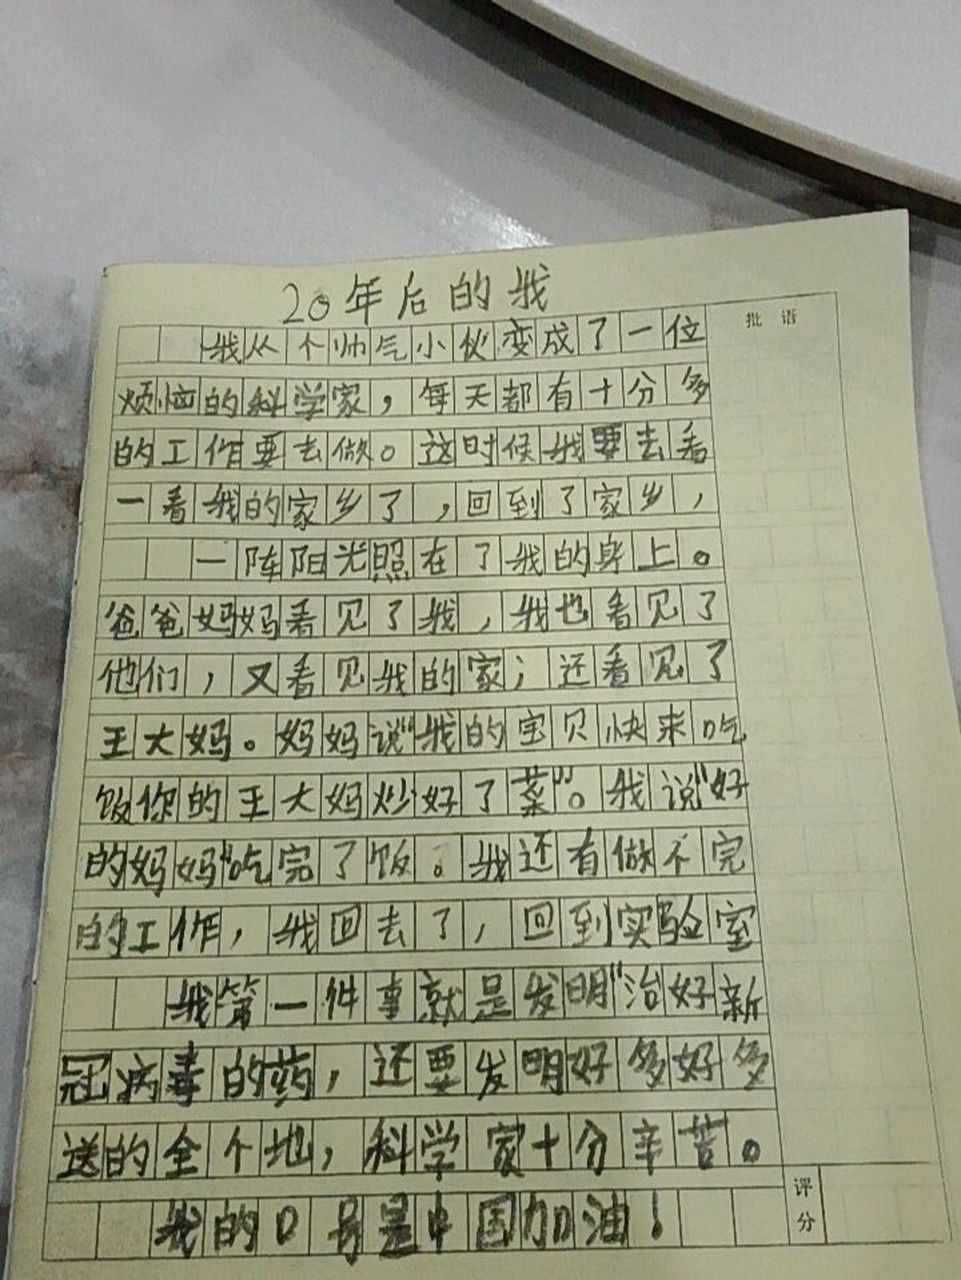 20年后的我
批语
我从个帅气小伙变成了一位
烦恼的科学家，每天都有十分多
的工作要去做。这时候我要去看
一看我的家乡了，回到了家乡，
一阵阳光照在了我的身上。
爸爸妈妈看见了我，我也看见了
他们，又看见我的家；还看见了
王大妈。妈妈说“我的宝贝快来吃
饭你的王大妈炒好了菜”。我说“好
的妈妈”吃完了饭。我还有做不完
的工作，我回去了，回到实验室
我第一件事就是发明“治好新
冠病毒的药，还要发明好多好多
送的全个地，科学家十分辛苦。
我的口号是中国加油！
评分